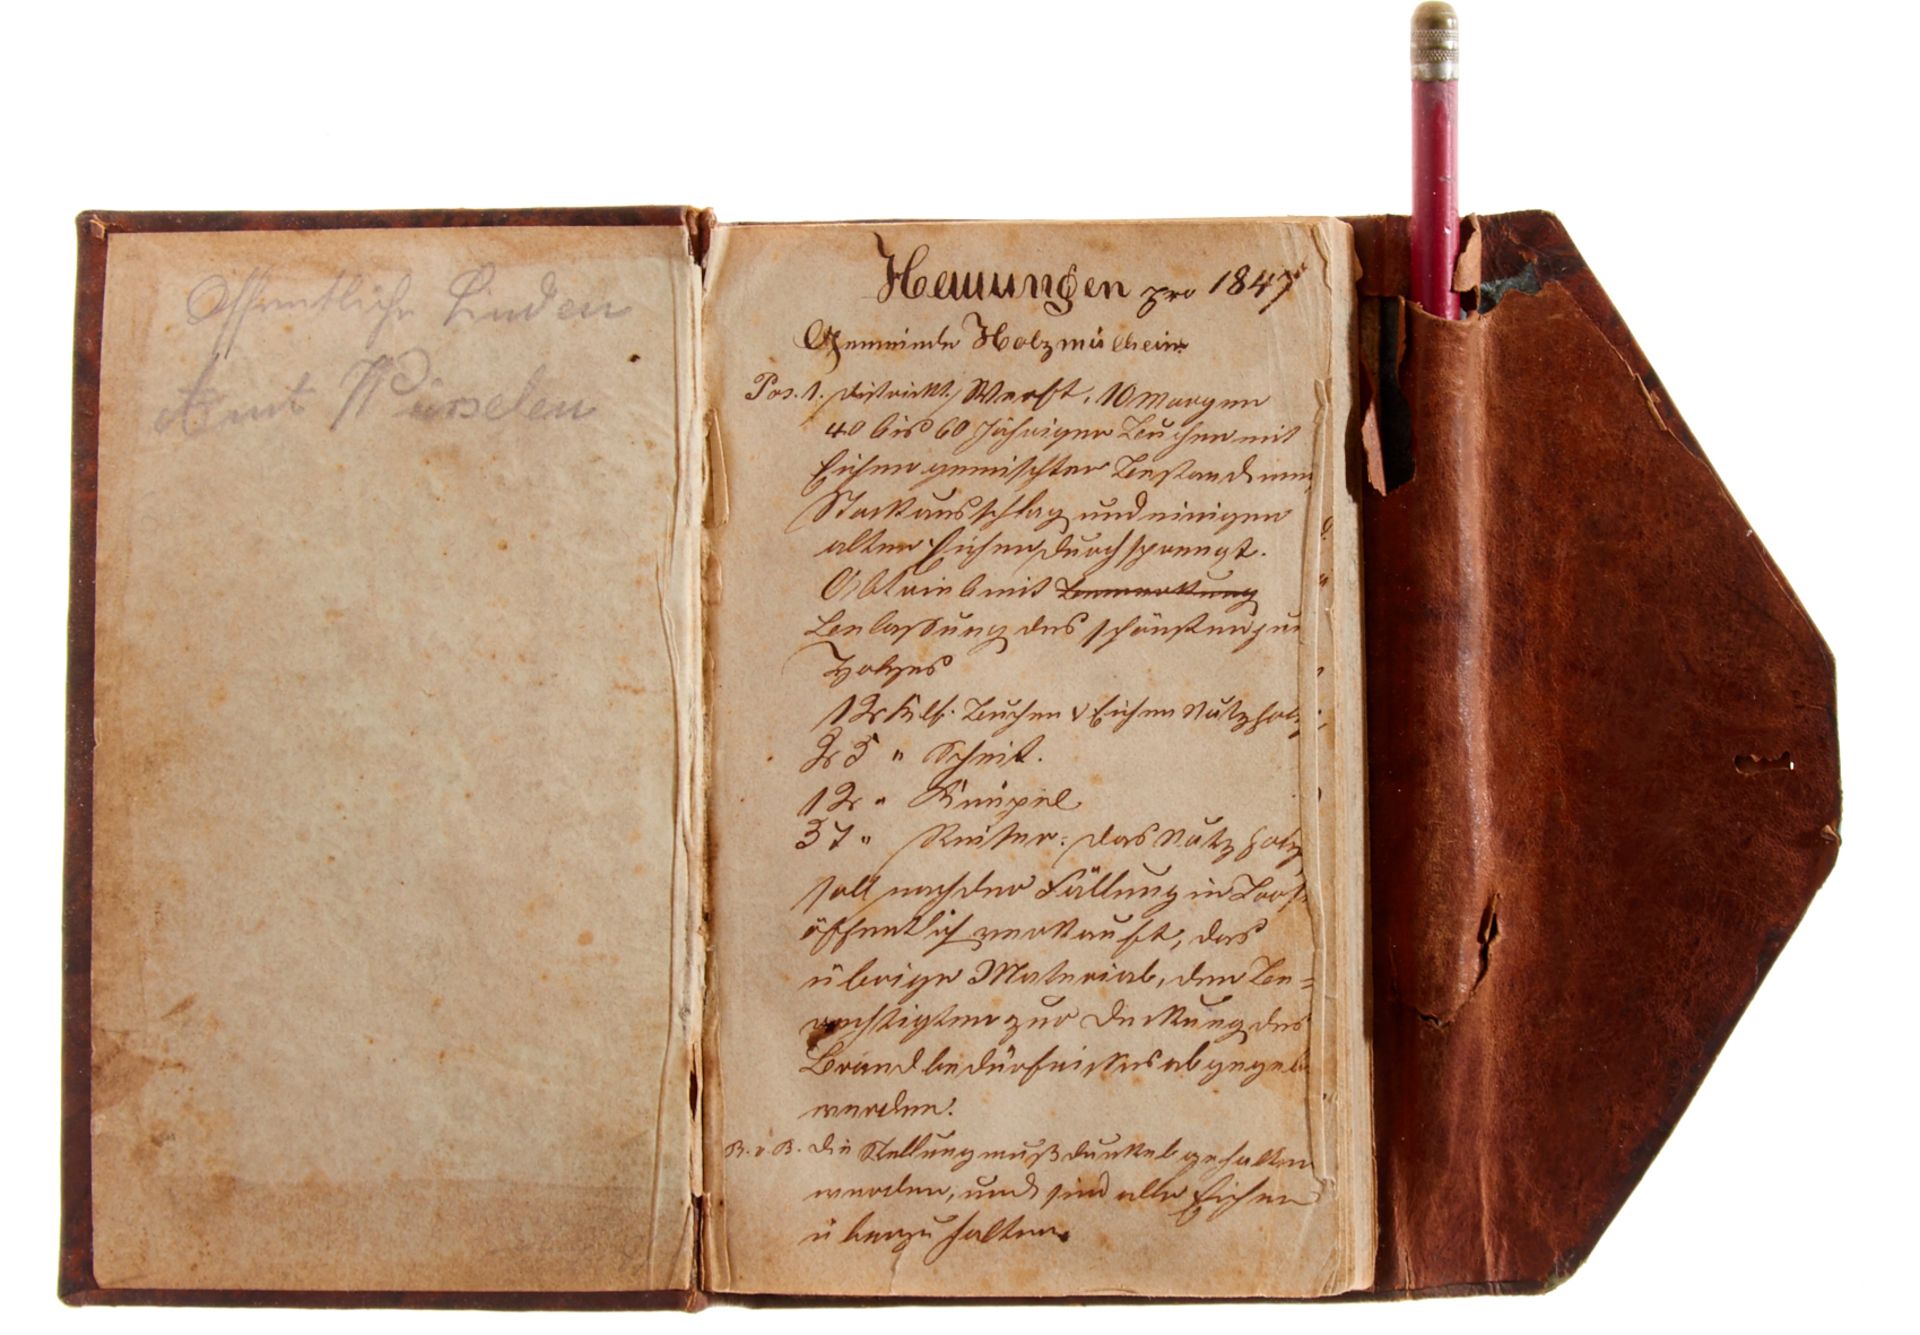 Öffentliche Linden
Amt Würselen
Hauungen pro 1847
Gemeinde Holzmülheim
Pos. 1. District Werft, 10 Morgen
40 bis 60 jähriger Buchen mit
Eichen gemischter Bestand
Stockausschlag und einigen
alten Eichen durchsprengt.
Abtrieb mit Bemerkung
Belassung des schönsten
Holzes
12 Klf. Buchen & Eichen Nutzholz
25 " Scheit.
12 " Knüppel
37 " Reiser: das Nutzholz
soll nach der Fällung in
öffentlich verkauft, das
übrige Material, den Be=
rechtigten zur Deckung des
Brandbedürfnisses
werden.
Die Stellung muß dunkel gehalten
werden, und sind alle Eichen
überzuhalten.